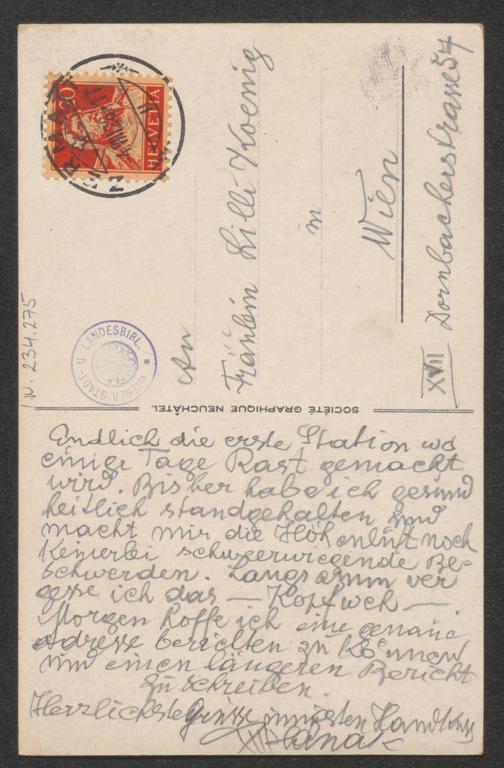 20
HELVETIA
An
Fräulein Lilli Koenig
in
Wien
XVII Dornbacherstrasse 54
SOCIÉTÉ GRAPHIQUE NEUCHÂTEL
WIENER STADT- U. LANDESBIBL.
234.275
Endlich die erste Station wo
einige Tage Rast gemacht
wird. Bisher habe ich gesund
heitlich standgehalten und
macht mir die Höhenluft noch
keinerlei schwerwiegende Be-
schwerden. Langsamm ver
gesse ich das — Kopfweh —
Morgen hoffe ich eine genaue
Adresse berichten zu können
um einen längeren Bericht
zu schreiben.
Herzlichste Grüsse innigsten Handkuss